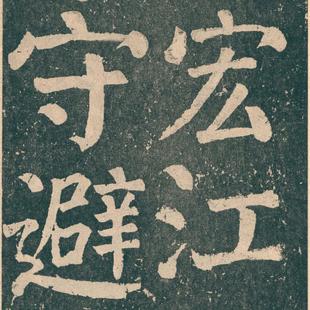 宏江
守避